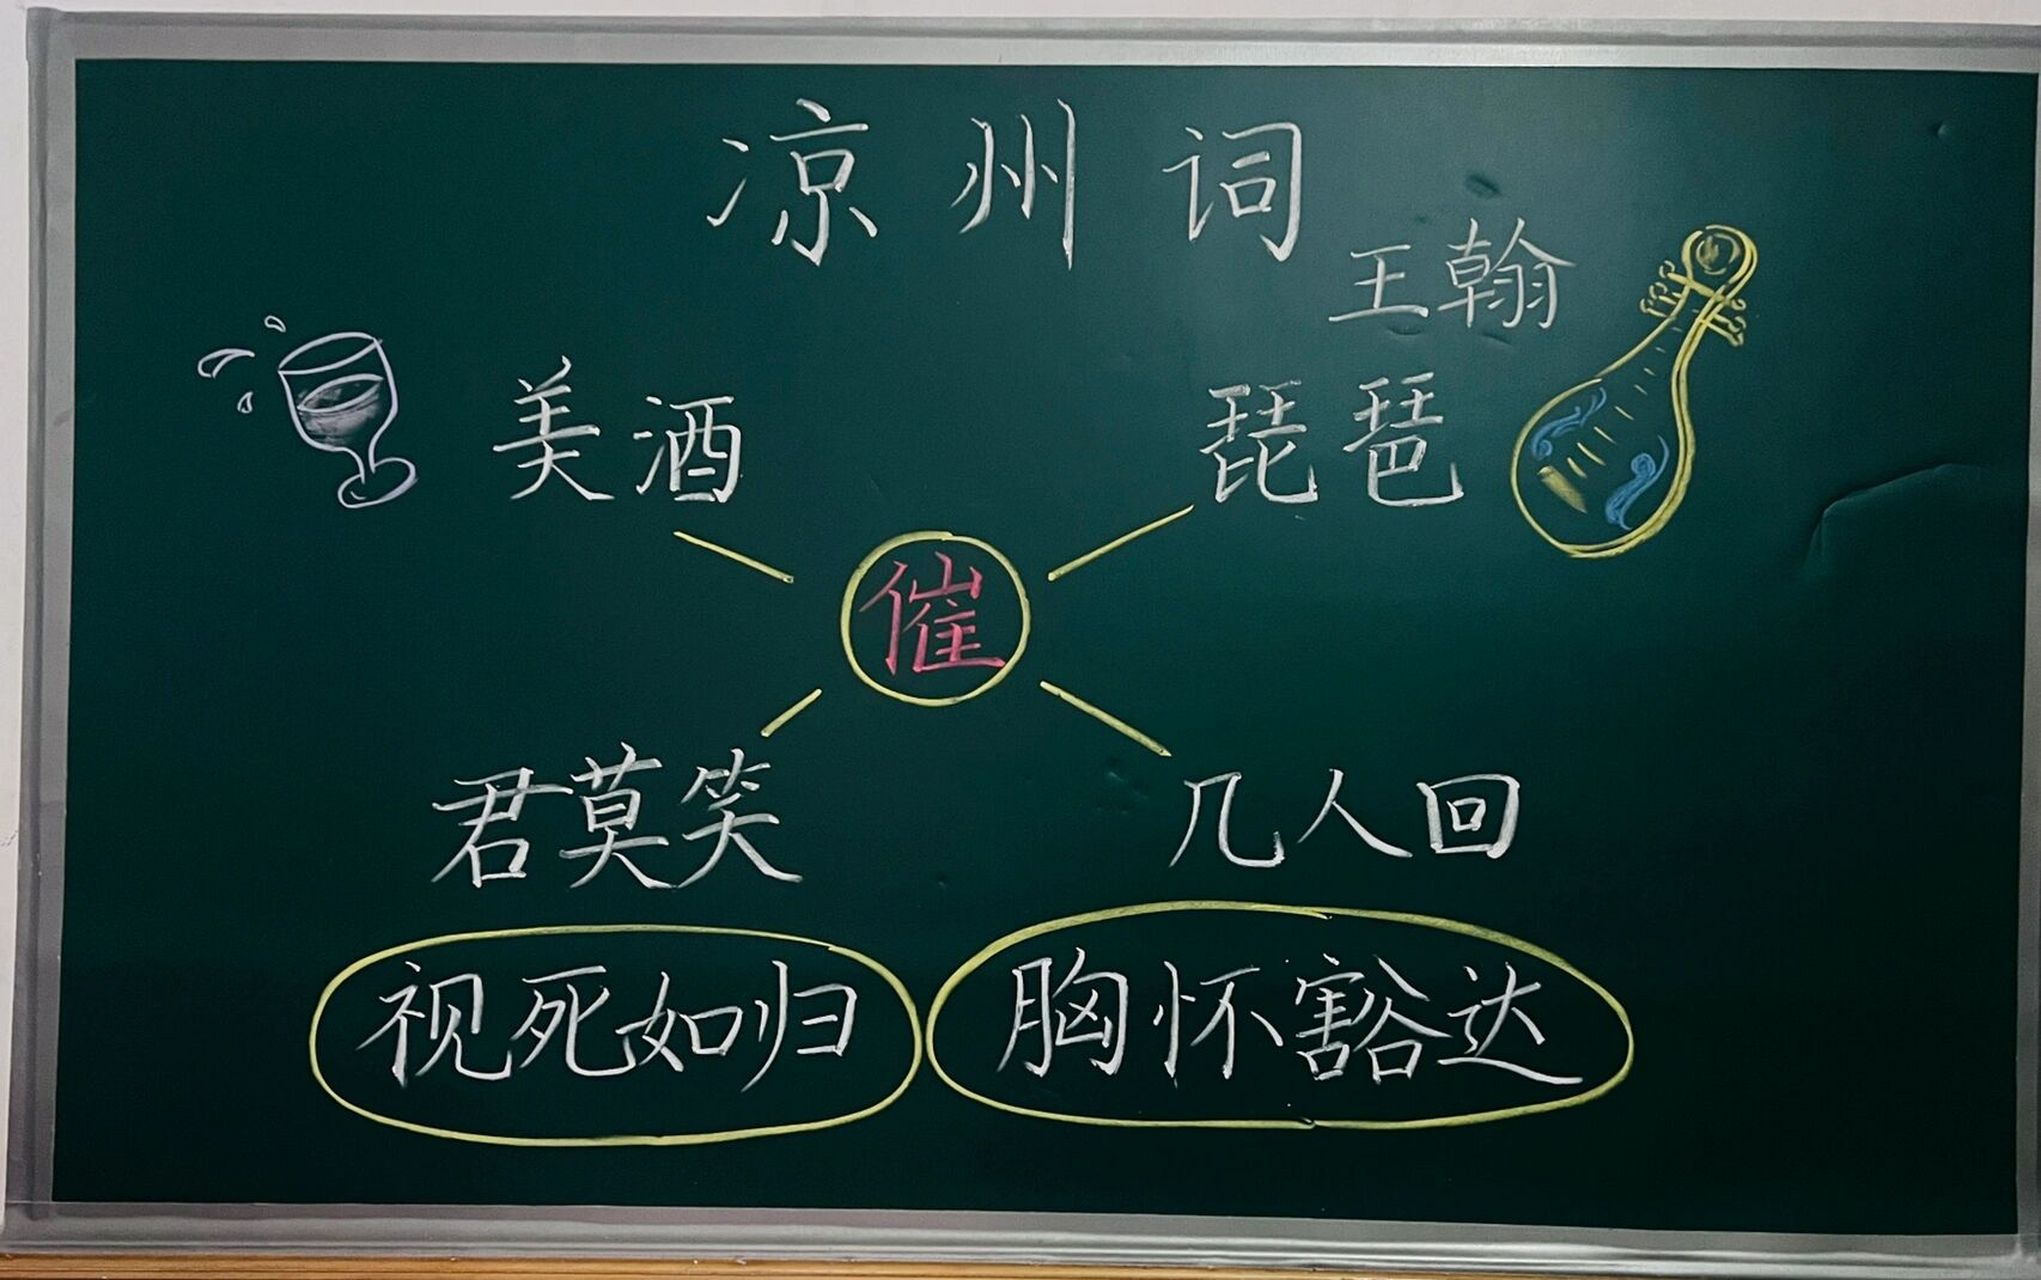 凉州词
王翰
美酒 琵琶
催
君莫笑 几人回
视死如归 胸怀豁达